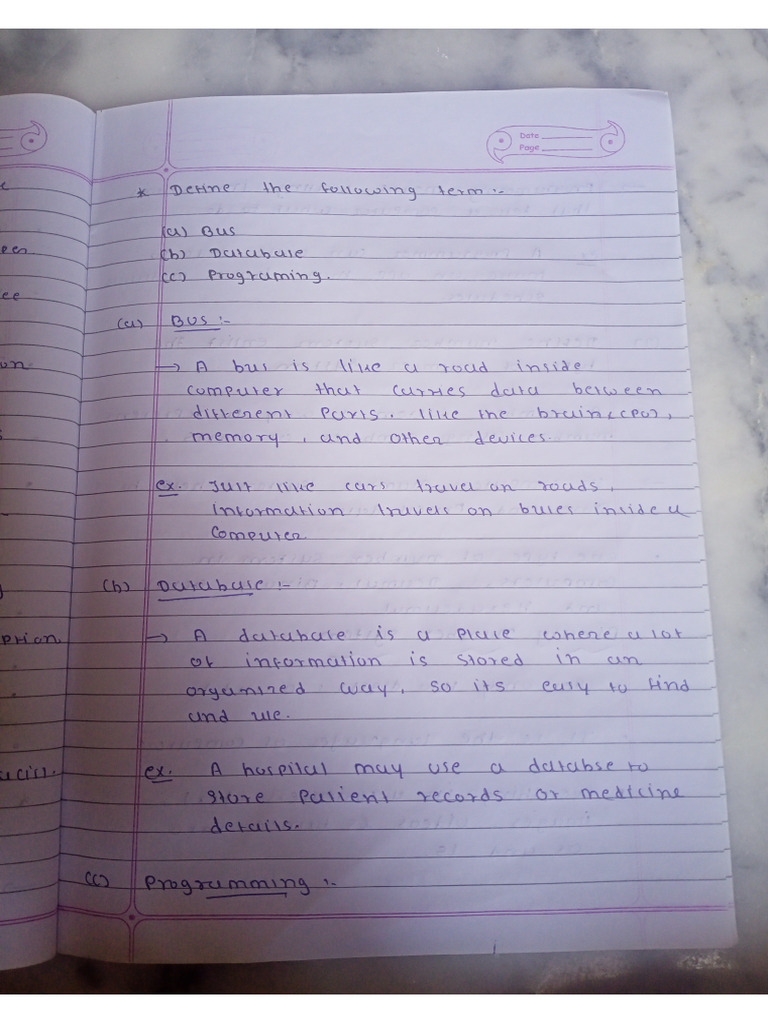 Date
Page
* Define the following term :-
(a) Bus
(b) Database
(c) Programing.
(a) BUS :-
→ A bus is like a road inside
computer that carries data between
different parts. like the brain (CPU),
memory, and other devices.
ex. Just like cars travel on roads,
information travels on buses inside a
computer.
(b) Database :-
→ A database is a place where a lot
of information is stored in an
organized way, so its easy to find
and use.
ex. A hospital may use a databse to
store patient records or medicine
details.
(c) Programming :-
ption